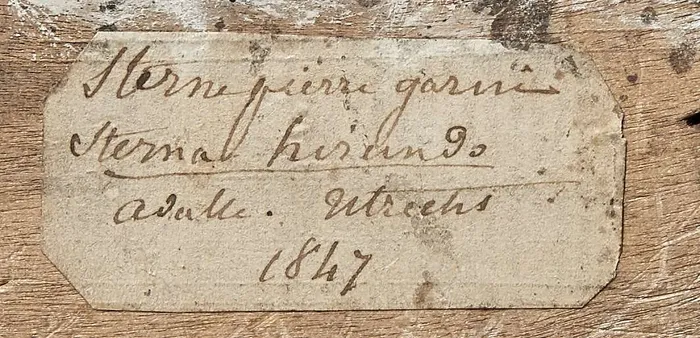 Sterne pierre garin
Sterna hirundo
adulte. Utrecht
1847